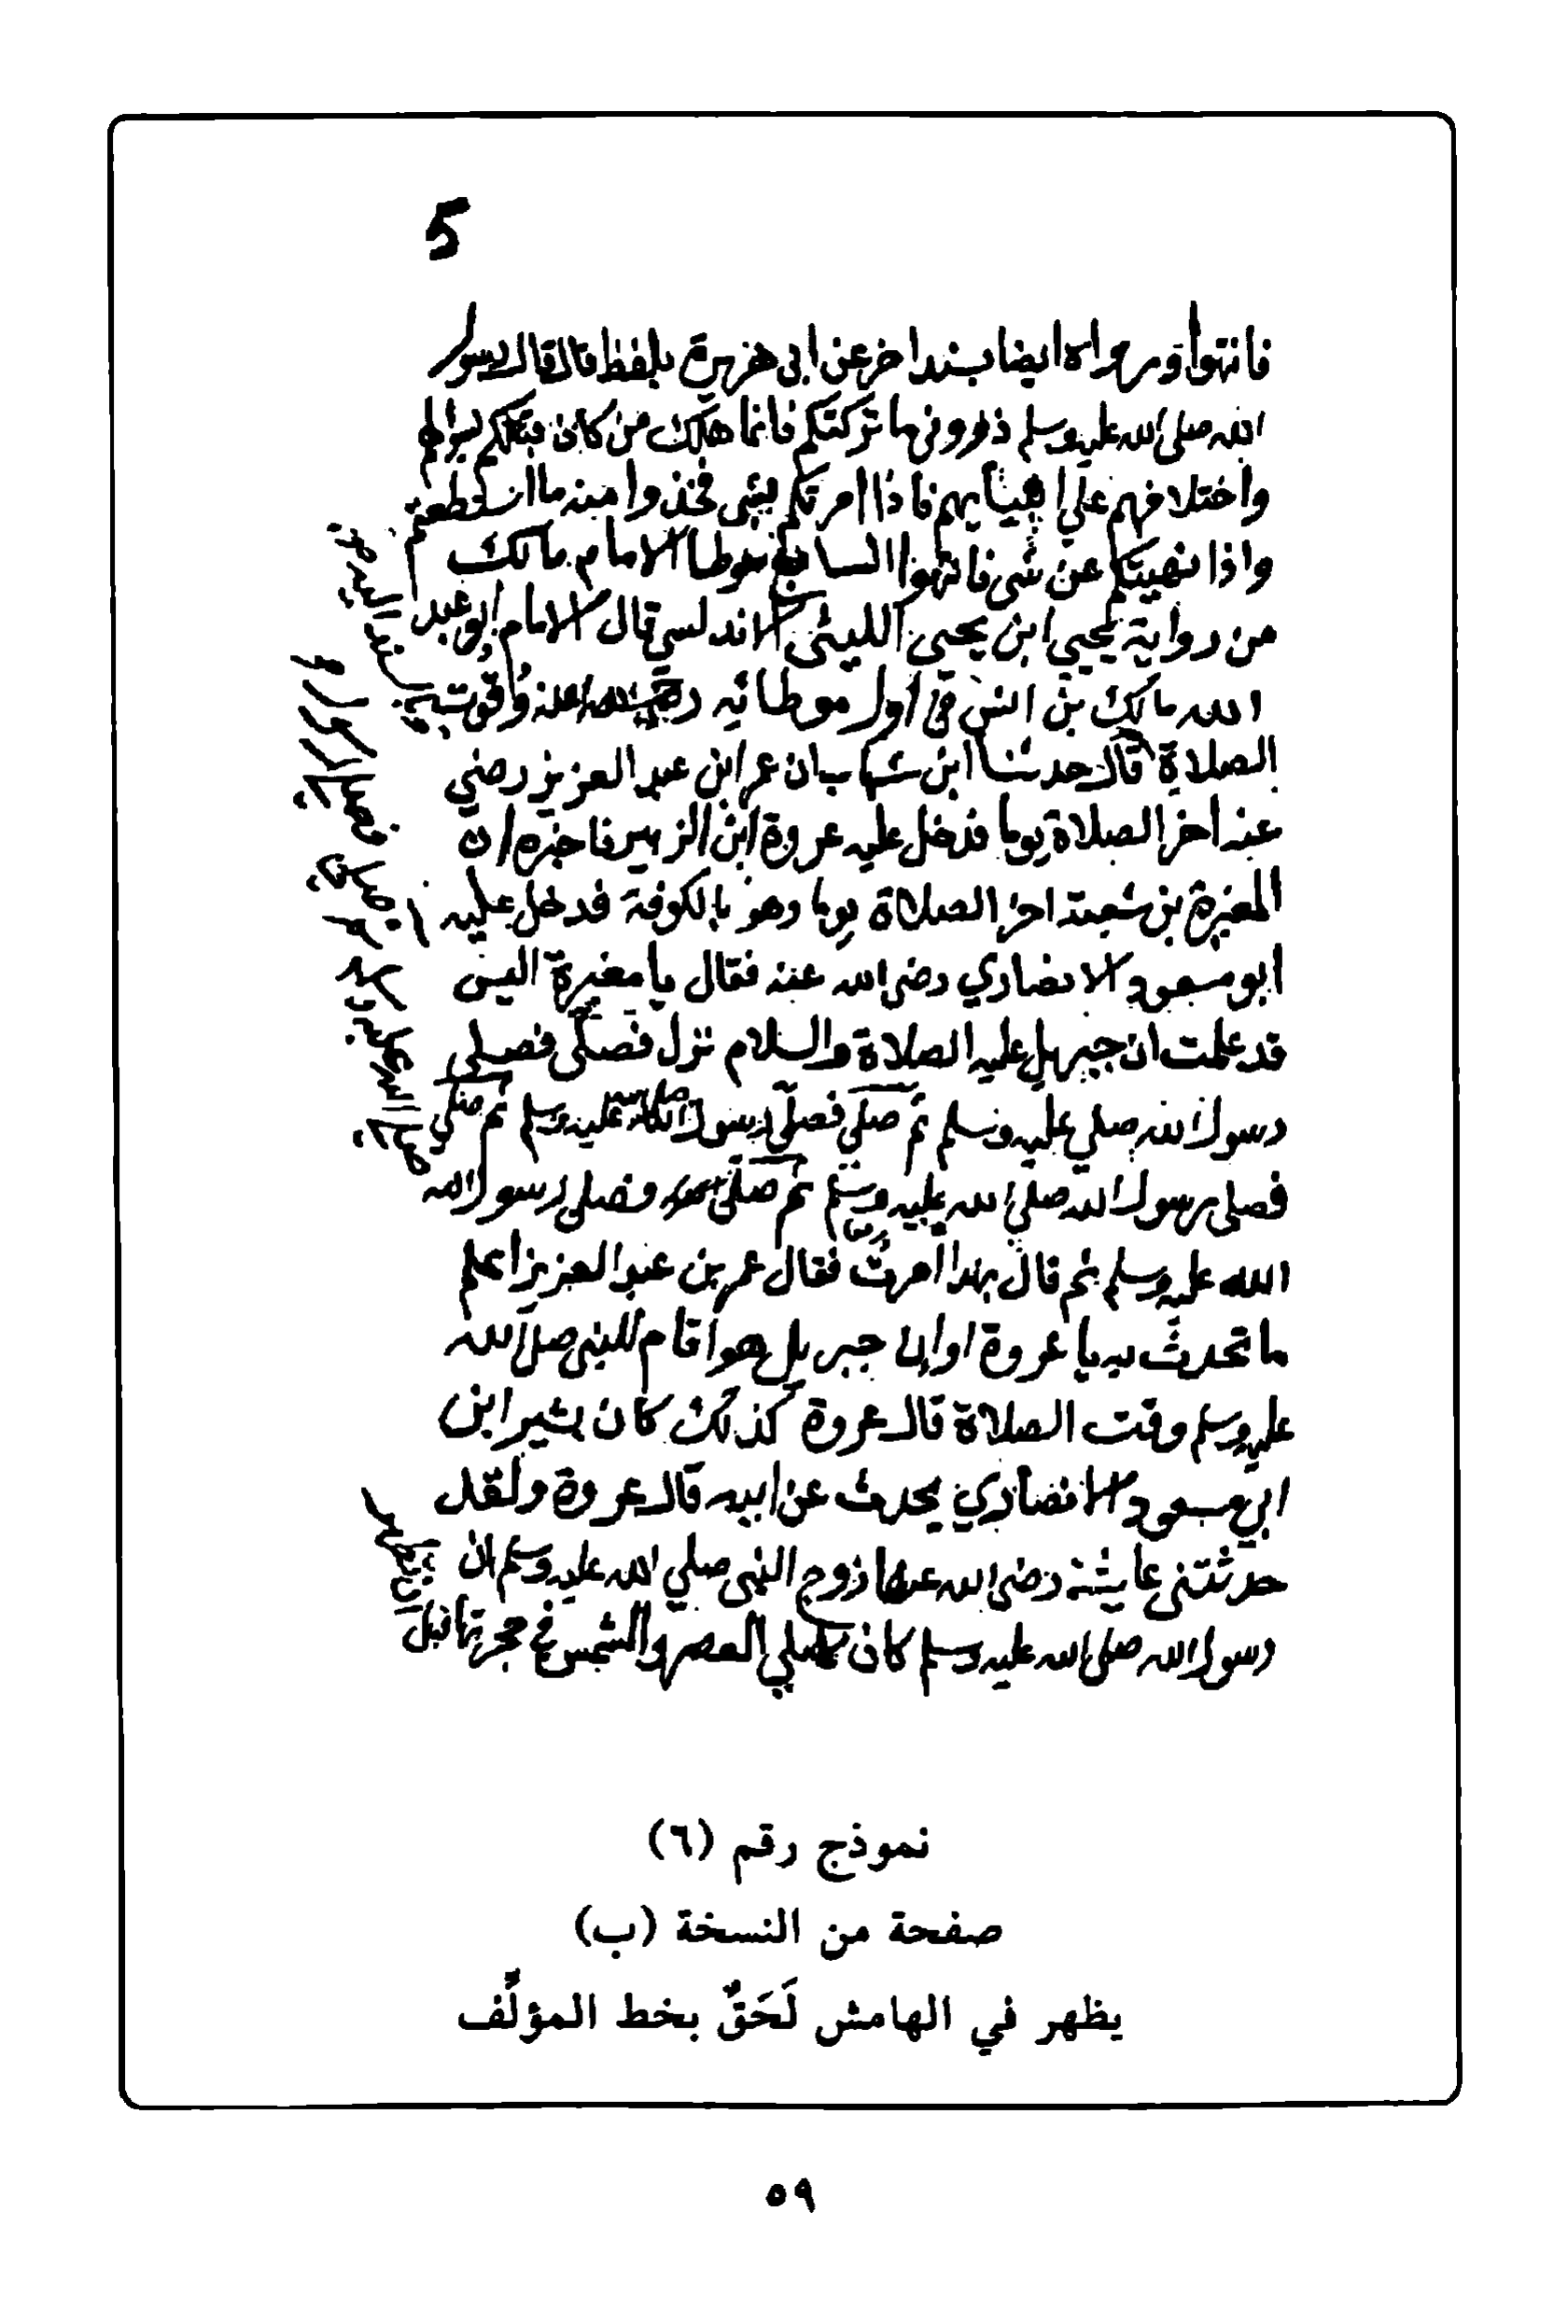 5
فانتهوا ورواه ايضا بسند اخر عن ابي هريرة بلفظ قال قال رسول
الله صلى الله عليه وسلم ذروني ما تركتكم فانما هلك من كان قبلكم بسوالهم
واختلافهم على انبيايهم فاذا امرتكم بشي فخذوا منه ما استطعتم
واذا نهيتكم عن شي فانتهوا السابع موطا الامام مالك
من رواية يحيي ابن يحيى الليثي الاندلسي قال الامام ابو عبد
الله مالك بن انس في اول موطائه رضي الله عنه وقوت
الصلاة قال حدثنا ابن شهاب ان عمر ابن عبد العزيز رضي
عنه اخر الصلاة يوما فدخل عليه عروة ابن الزبير فاخبره ان
المغيرة بن شعبة اخر الصلاة يوما وهو بالكوفة فدخل عليه
ابو مسعود الانصاري رضي الله عنه فقال يا مغيرة اليس
قد علمت ان جبريل عليه الصلاة والسلام نزل فصلى فصلى
رسول الله صلي عليه وسلم ثم صلى فصلى رسول الله عليه وسلم ثم صلى
فصلى رسول الله صلى الله عليه وسلم ثم صلى فصلى رسول الله
الله عليه وسلم ثم قال بهذا امرت فقال عمر بن عبد العزيز اعلم
ما تحدث به يا عروة اوان جبريل هو اقام للنبي صلى الله
عليه وسلم وقت الصلاة قال عروة كذلك كان بشير ابن
ابي مسعود الانصاري يحدث عن ابيه قال عروة ولقد
حدثتني عايشة رضي الله عنها زوج النبي صلي الله عليه وسلم ان
رسول الله صلى الله عليه وسلم كان يصلي العصر والشمس في حجرتها قبل
نموذج رقم (٦)
صفحة من النسخة (ب)
يظهر في الهامش لَحَقٌ بخط المؤلِّف
٥٩